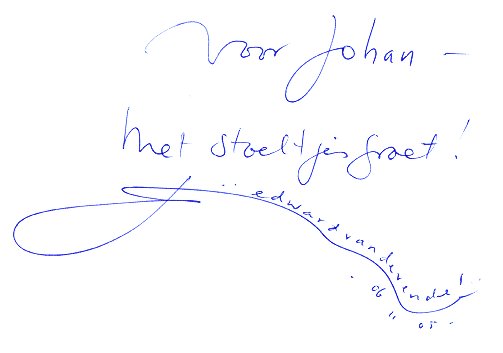 Voor Johan —
met stoeltjesgroet!
edwardvandevendel
06 11 05